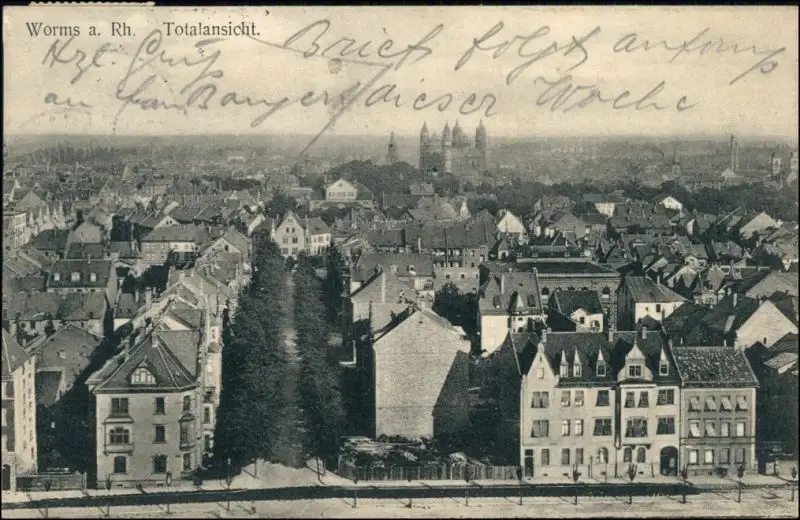 Worms a. Rh. Totalansicht.
Hzl. Gruß Brief folgt anfangs
an Frau Banger dieser Woche